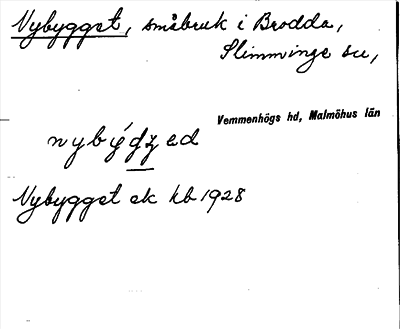 Nybygget, småbruk i Brodda,
Slimminge sn,
Vemmenhögs hd, Malmöhus län
Nybygget ek kb 1928